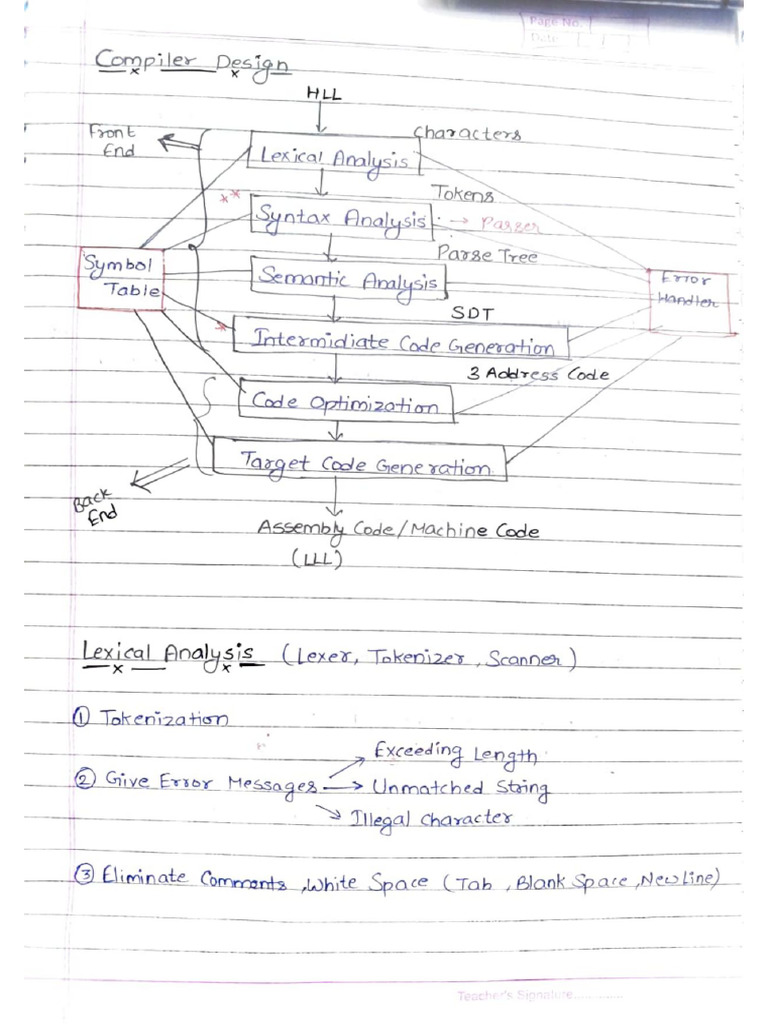 Page No.
Date
Compiler Design
HLL
Characters
Front
End
Lexical Analysis
Tokens
Syntax Analysis → Parser
Parse Tree
Symbol
Table
Semantic Analysis
Error
Handler
SDT
Intermidiate Code Generation
3 Address Code
Code Optimization
Target Code Generation
Back
End
Assembly Code/Machine Code
(LLL)
Lexical Analysis (Lexer, Tokenizer, Scanner)
① Tokenization
Exceeding Length
② Give Error Messages → Unmatched String
Illegal Character
③ Eliminate Comments, White Space (Tab, Blank Space, New Line)
Teacher's Signature..............